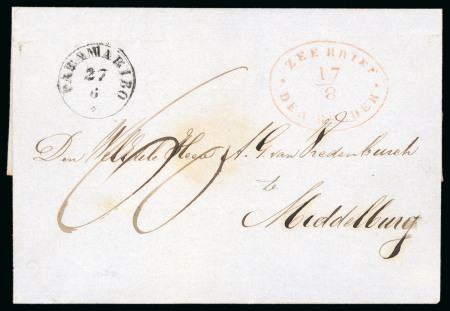 PARAMARIBO
27
6
ZEEBRIEF
17
8
DEN HELDER
60
Den WelEdele Heer A. G. van Vredenburch
te
Middelburg